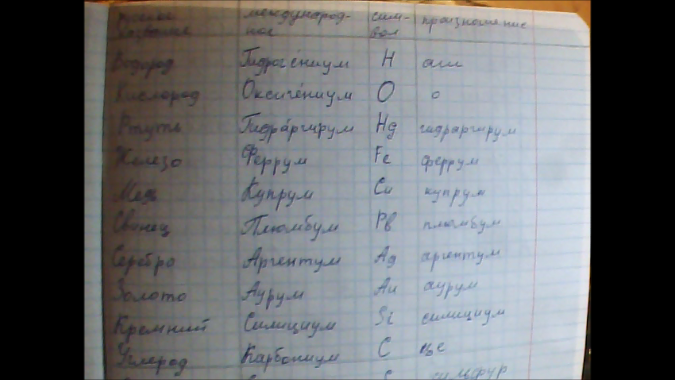 русское международ- сим- произношение
название ное вол
Водород Гидроге́ниум H аш
Кислород Оксиге́ниум O о
Ртуть Гидра́ргирум Hg гидраргирум
Железо Феррум Fe феррум
Медь Купрум Cu купрум
Свинец Плюмбум Pb плюмбум
Серебро Аргентум Ag аргентум
Золото Аурум Au аурум
Кремний Силициум Si силициум
Углерод Карбониум C це
сульфур